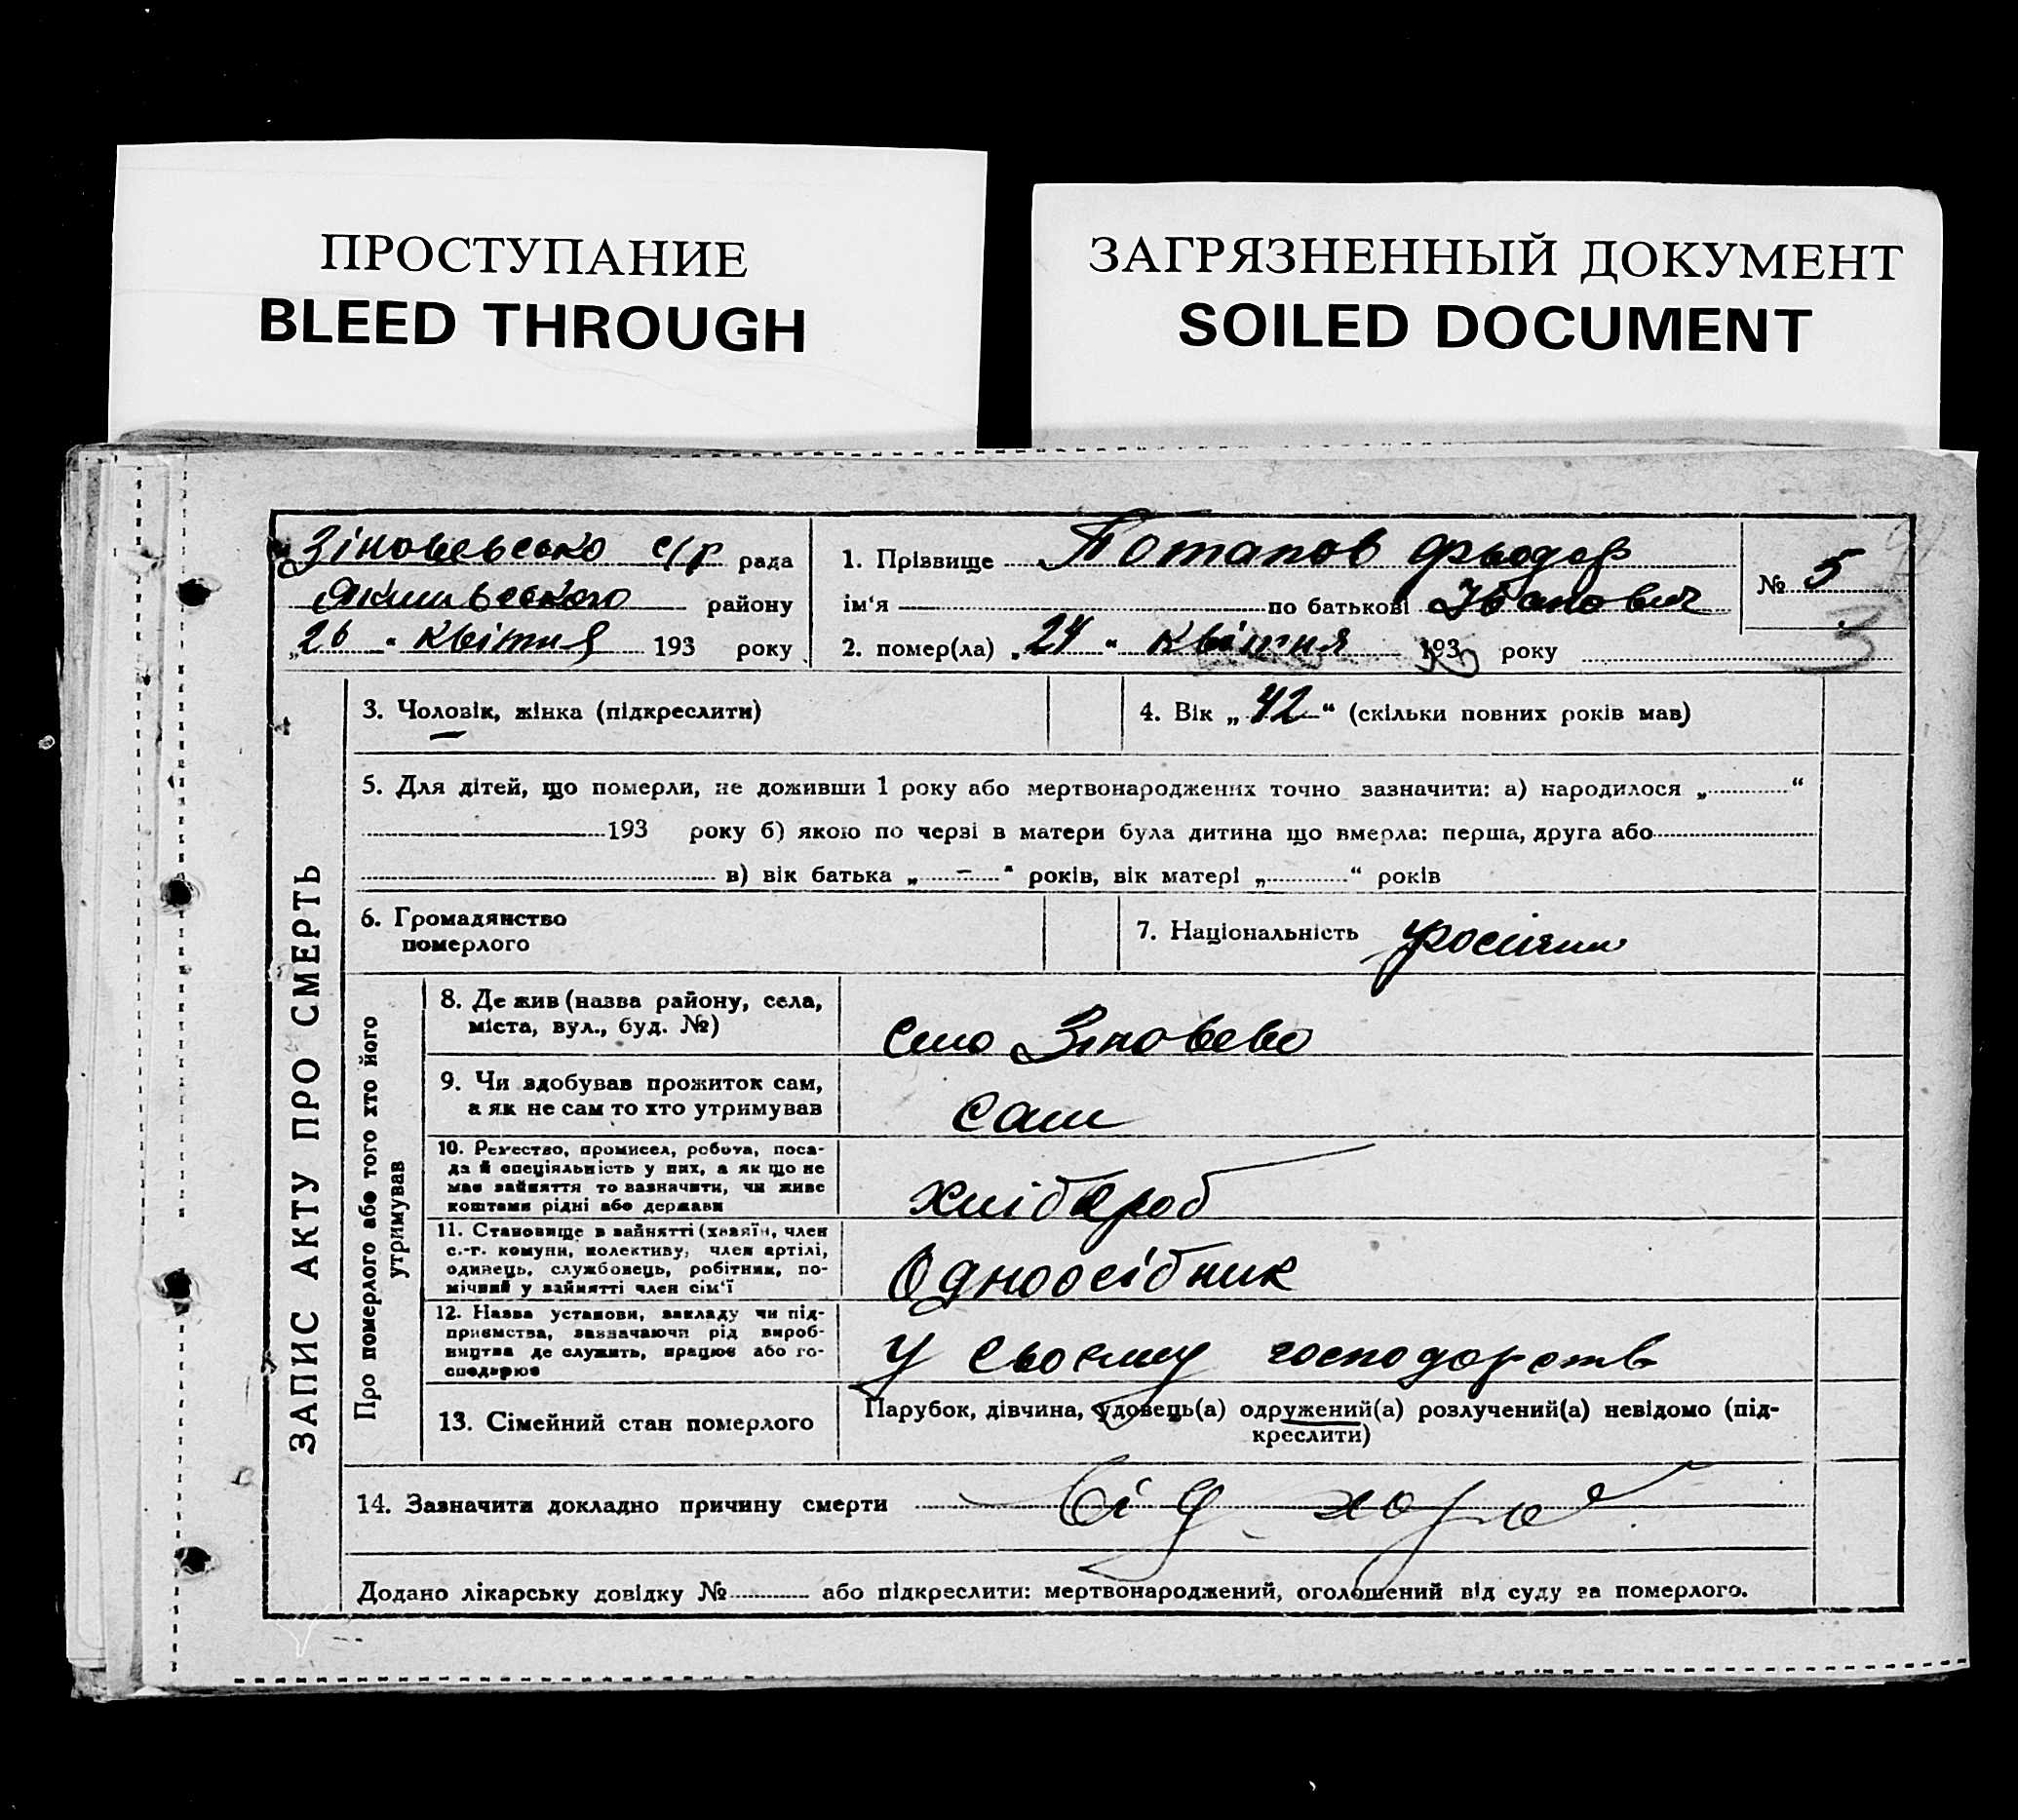 ПРОСТУПАНИЕ
BLEED THROUGH
ЗАГРЯЗНЕННЫЙ ДОКУМЕНТ
SOILED DOCUMENT
Зіновевсько с/р рада
району
„26“ квітня 193 року
1. Прізвище Потапов Фьодор
ім‘я по батькові Іванович
2. помер(ла) „24“ квітня 193 року
№ 5
3
ЗАПИС АКТУ ПРО СМЕРТЬ
3. Чоловік, жінка (підкреслити)
4. Вік „42“ (скільки повних років мав)
5. Для дітей, що померли, не доживши 1 року або мертвонароджених точно зазначити: а) народилося „ “
193 року б) якою по черзі в матери була дитина що вмерла: перша, друга або
в) вік батька „ – “ років, вік матері „ “ років
6. Громадянство
померлого
7. Національність росіянин
Про померлого або того хто його
утримував
8. Де жив (назва району, села,
міста, вул., буд. №)
село Зіновево
9. Чи здобував прожиток сам,
а як не сам то хто утримував
сам
10. Ремество, промисел, робота, поса-
да й спеціяльність у них, а як що не
має зайняття то зазначити, чи живе
коштами рідні або держави
хлібороб
11. Становище в зайнятті (хазяїн, член
с.-г. комуни, колективу, член артілі,
одинець, службовець, робітник, по-
мічний у зайнятті член сім‘ї
Одноосібник
12. Назва установи, закладу чи під-
приємства, зазначаючи рід вироб-
ництва де служить, працює або го-
сподарює
У своєму господарств
13. Сімейний стан померлого
Парубок, дівчина, удовець(а) одружений(а) розлучений(а) невідомо (під-
креслити)
14. Зазначити докладно причину смерти від
Додано лікарську довідку № або підкреслити: мертвонароджений, оголошений від суду за померлого.